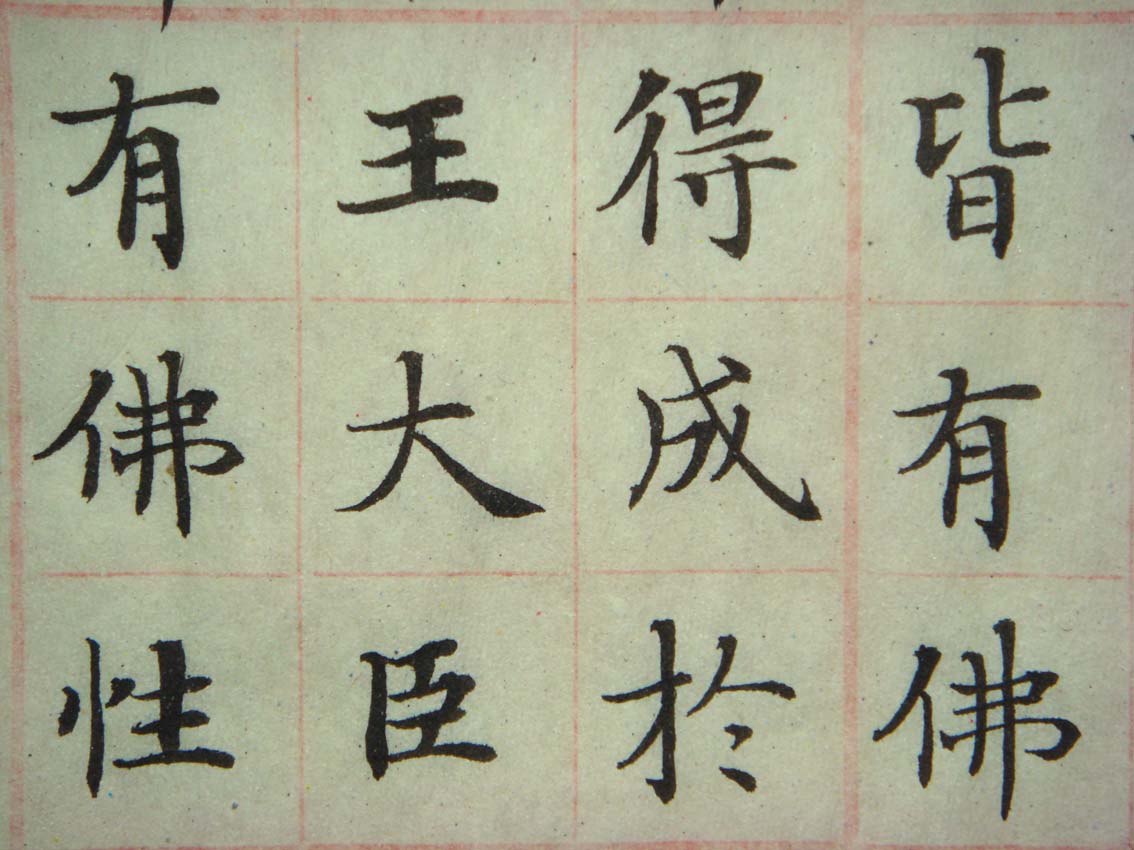 皆有佛
得成於
王大臣
有佛性